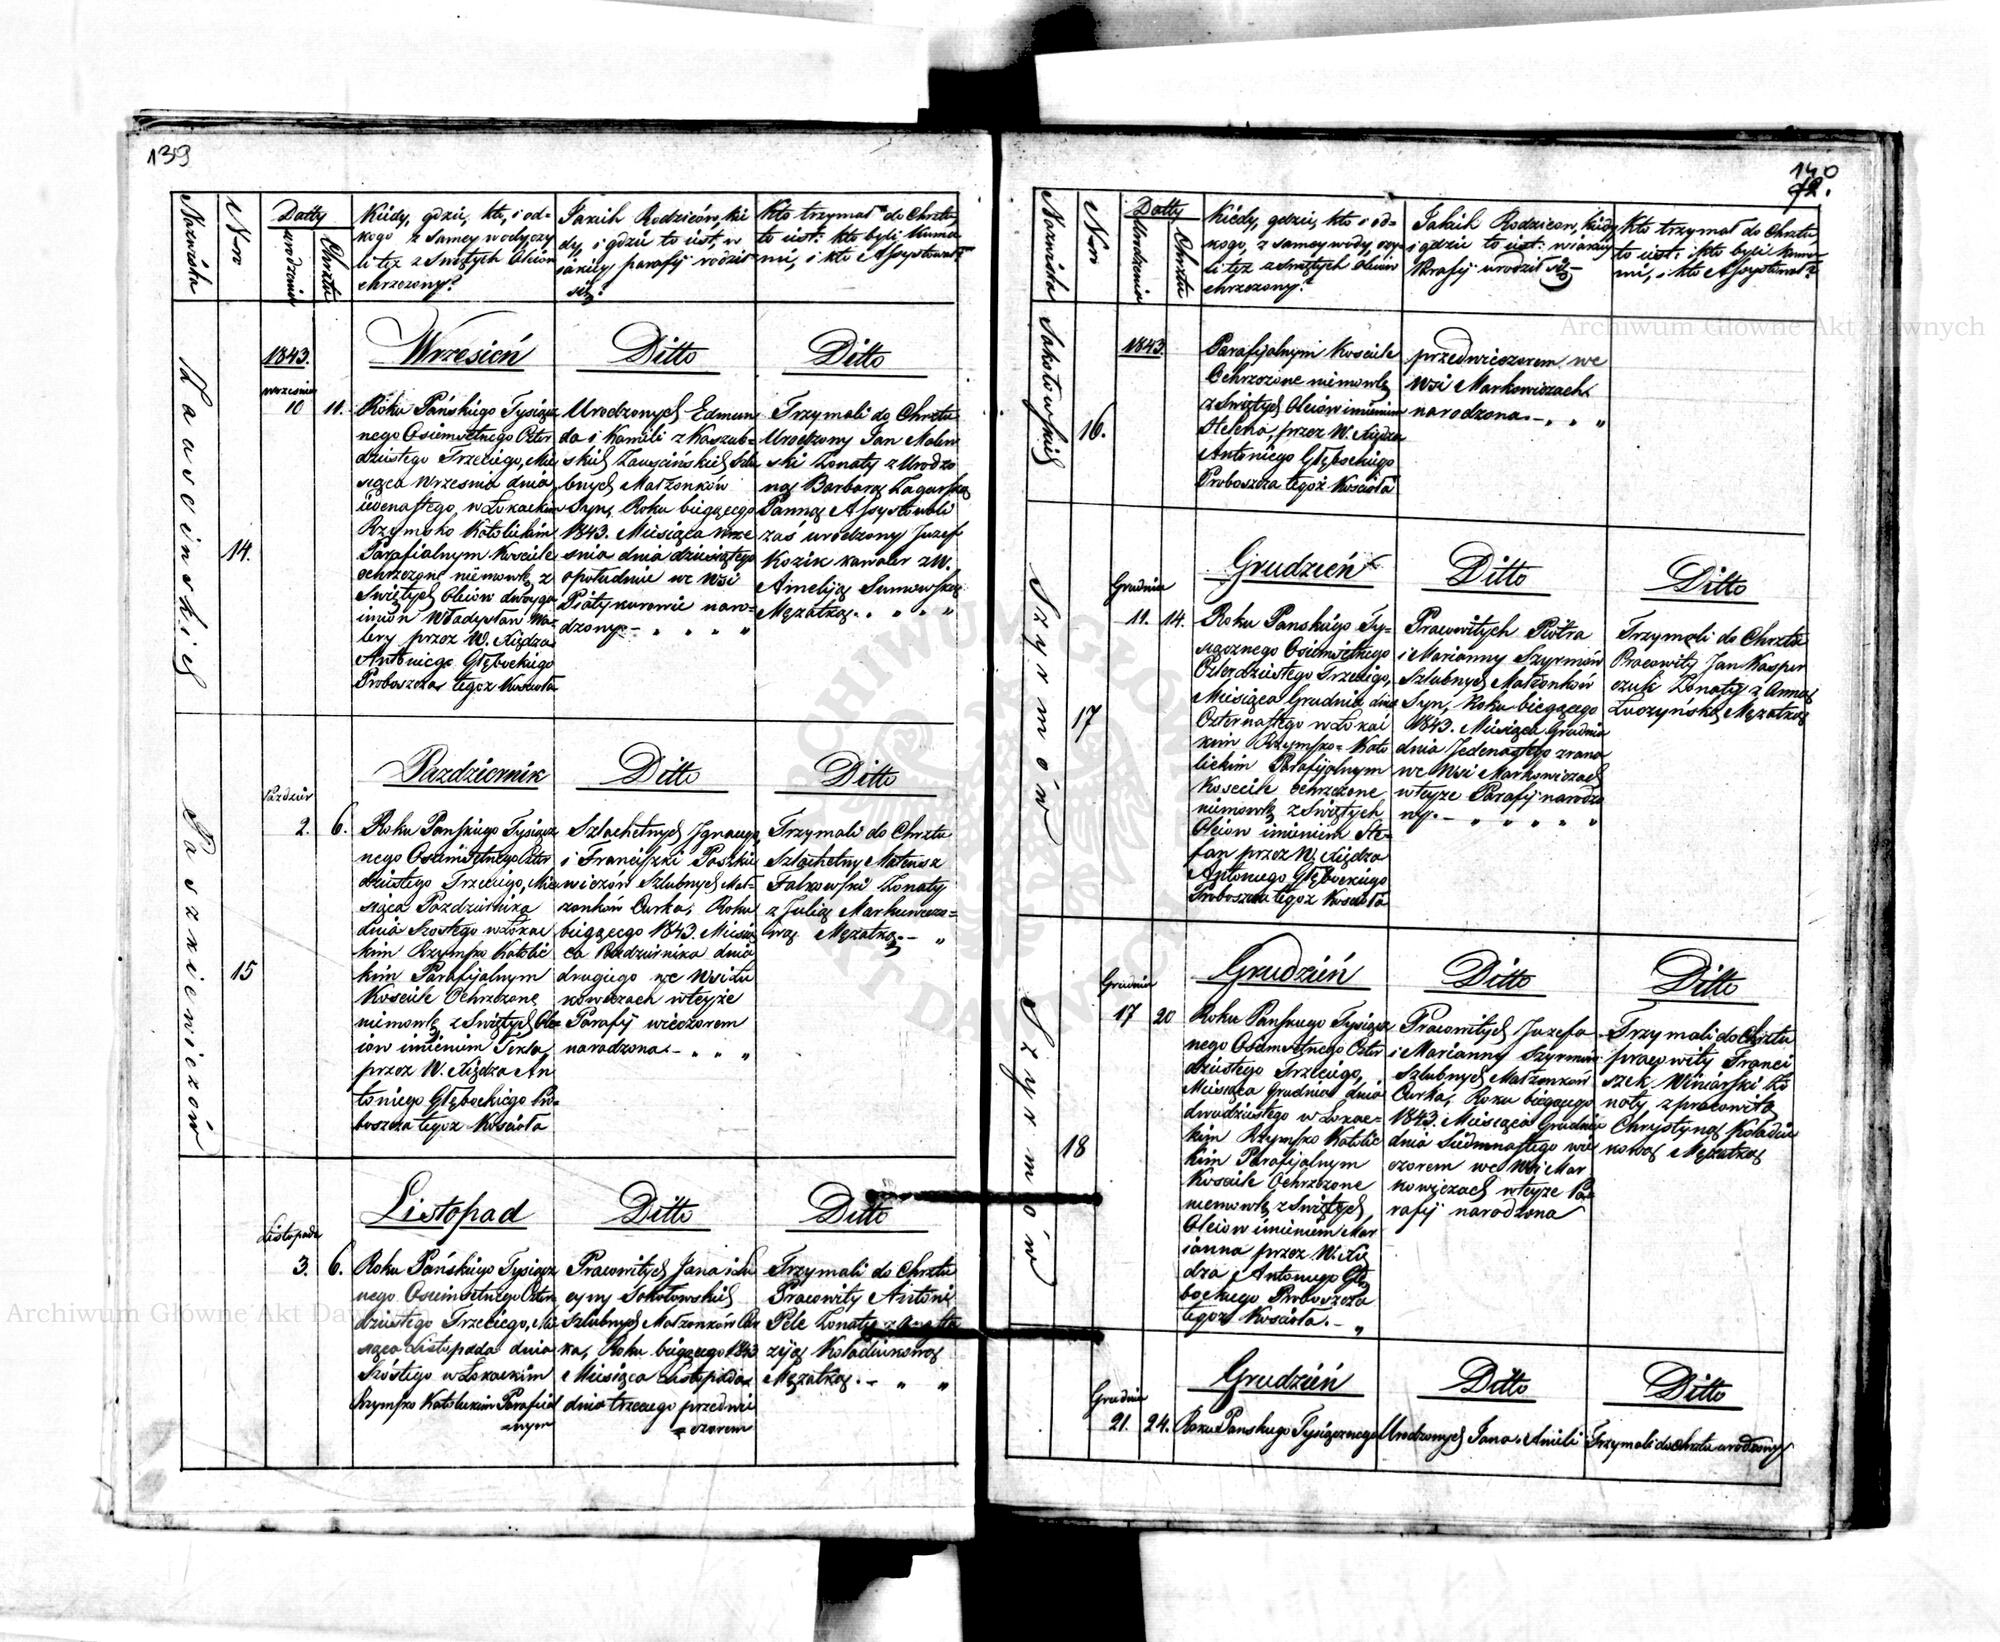 139
Nazwiska
Nro
Datty
urodzenia
Chrztu
Kiedy, gdzie, kto, i od-
kogo z samey wody, czy
li też z Swiętych Oleiów
chrzczony?
Jakich Rodziców, kie
dy, i gdzie to iest, w
iakiey parafij rodził
się?
Kto trzymał do Chrztu
to iest: kto byli Kumo
mi, i kto Assystował?
Zauscinskich
14.
1843.
wrzesnia
10
11.
Wrzesień
Roku Pańskiego Tysiącz
nego Osiemsetnego Czter
dziestego Trzeciego, Mie
siąca Wrzesnia dnia
iedenastego, w Łokackim
Rzymsko Katolickim
Parafialnym Kosciele
ochrzczone niemowlę z
Swiętych Oleiów dwoyga
imion Władysław Wa-
lery przez W. Xiędza
Antoniego Głębockiego
Proboszcza tegoz Koscioła
Ditto
Urodzonych Edmun
da i Kamili z Kaszub-
skich Zauscińskich Szlu
bnych Małżonków
Syn, Roku bieżącego
1843. Miesiąca Wrze
snia dnia dziesiątego
opołudniu we Wsi
Piátykorowie naro-
dzony.-
Ditto
Trzymali do Chrztu
Urodzony Jan Malew
ski Zonaty z Urodzo
ną Barbarą Zagurską
Panną Assystowali
zaś urodzony Juzef
Kozik kawaler z W.
Amelyją Sumowską
Mężatką.
Paszkiewiczów
15
Pazdzier
2.
6.
Pazdziernik
Roku Pańskiego Tysiącz
nego Osiemsetnego Czter
dziestego Trzeciego, Mie
siąca Pazdziernika
dnia Szostego w Łokac
kim Rzymsko Katolic
kim Parafijalnym
Kosciele Ochrzczone
niemowlę z Swiętych Ole-
iow imieniem Tekla,
przez W. Xiędza An
toniego Głębockiego Pro-
boszcza tegoz Kosciola
Ditto
Szlachetnych Jgnacego,
i Franciszki Paszkie
wiczów Szlubnych Mał-
żonków Curka, Roku
bieżącego 1843. Miesią
ca Pazdziernika dnia
drugiego we Wsi Ju
kowiczach wteyże
Parafij wieczorem
narodzona.-
Ditto
Trzymali do Chrztu
Szlachetny Mateusz
Falkowski Zonaty
z Julią Markiewiczo-
wą Mężatką.-
Listopada
3.
6.
Listopad
Roku Pańskiego Tysiącz
nego Osiemsetnego Czter
dziestego Trzeciego, Mie
siąca Listopada dnia
Szóstego w Łokackim
Rzymsko Katolickim Parafial
nym
Ditto
Pracowitych Jana i Lu
cyny Sokołowskich
Szlubnych Małżonków Cur
ka, Roku bieżącego 1843
Miesiąca Listopada
dnia trzeciego przedwie
czorem
Ditto
Trzymali do Chrztu
Pracowity Antoni
Pele Zonaty z Anasta
zyją Koladiukową
Mężatką.-
140
72.
Nazwiska
Nro
Datty
Urodzenia
Chrztu
Kiedy, gdzie, kto i od-
kogo, z samey wody, czy
li też z Swiętych Oleiów
chrzczony?
Jakich Rodzicow, kiedy
i gdzie to iest: w iakiey
Parafij urodził się-
Kto trzymał do Chrztu,
to iest: Kto byli Kumo-
mi, i kto Assystował?
Sokołowskich
16.
1843.
Parafijalnym Kosciele
Ochrzczone niemowlę
z Swiętych Oleiów imieniem
Helena, przez W. Xiędza
Antoniego Głębockiego
Proboszcza tegoż Kosciola
przedwieczorem we
Wsi Markowiczach
narodzona.-
Szyrmów
17
Grudnia
11.
14.
Grudzień
Roku Panskiego Ty-
siącznego Osiemsetnego
Czterdziestego Trzeciego,
Miesiąca Grudnia dnia
Czternastego w Łokac
kim Rzymsko-Kato
lickim Parafijalnym
Kosciele ochrzczone
niemowlę z Swiętych
Oleiow imieniem Ste-
fan przez W. Xiędza
Antoniego Głębockiego
Proboszcza tegoż Kosciola
Ditto
Pracowitych Piotra
i Marianny Szyrmów
Szlubnych Małżonków
Syn, Roku bieżącego
1843. Miesiąca Grudnia
dnia Jedenastego zrana
we Wsi Markowiczach
wteyże Parafij narodzo
ny.-
Ditto
Trzymali do Chrztu
Pracowity Jan Kasper
czuk Zonaty z Anną
Łuczyńską Mężatką
Szyrmów
18
Grudnia
17
20
Grudzień
Roku Pańskiego Tysiącz
nego Osiemsetnego Czter
dziestego Trzeciego,
Miesiąca Grudnia dnia
dwudziestego w Łokac-
kim Rzymsko Katolic
kim Parafijalnym
Kosciele Ochrzczone
niemowlę z Swiętych
Oleiow imieniem Mar
ianna przez W. Xię
dza Antoniego Głę
bockiego Proboszcza
tegoż Kosciola.-
Ditto
Pracowitych Juzefa
i Marianny Szyrmów
Szlubnych Małżonków
Curka, Roku bieżącego
1843. Miesiąca Grudnia
dnia Siedmnastego wie
czorem we Wsi Mar
kowiczach wteyże Pa
rafij narodzona
Ditto
Trzymali do Chrztu
pracowity Franci
szek Winiarski Żo
naty z pracowitą
Chrystyną Koladiu
kową Mężatką
Grudnia
21.
24.
Grudzień
Roku Panskiego Tysiącznego
Ditto
Urodzonych Jana i Anieli
Ditto
Trzymali do Chrztu urodzony
Archiwum Główne Akt Dawnych
Archiwum Główne Akt Dawnych
ARCHIWUM GŁÓWNE AKT DAWNYCH